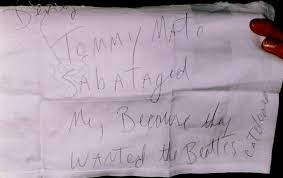 Denny
TOMMY Mato
SABATAGED
Me, Because they
WANTED the Beatles